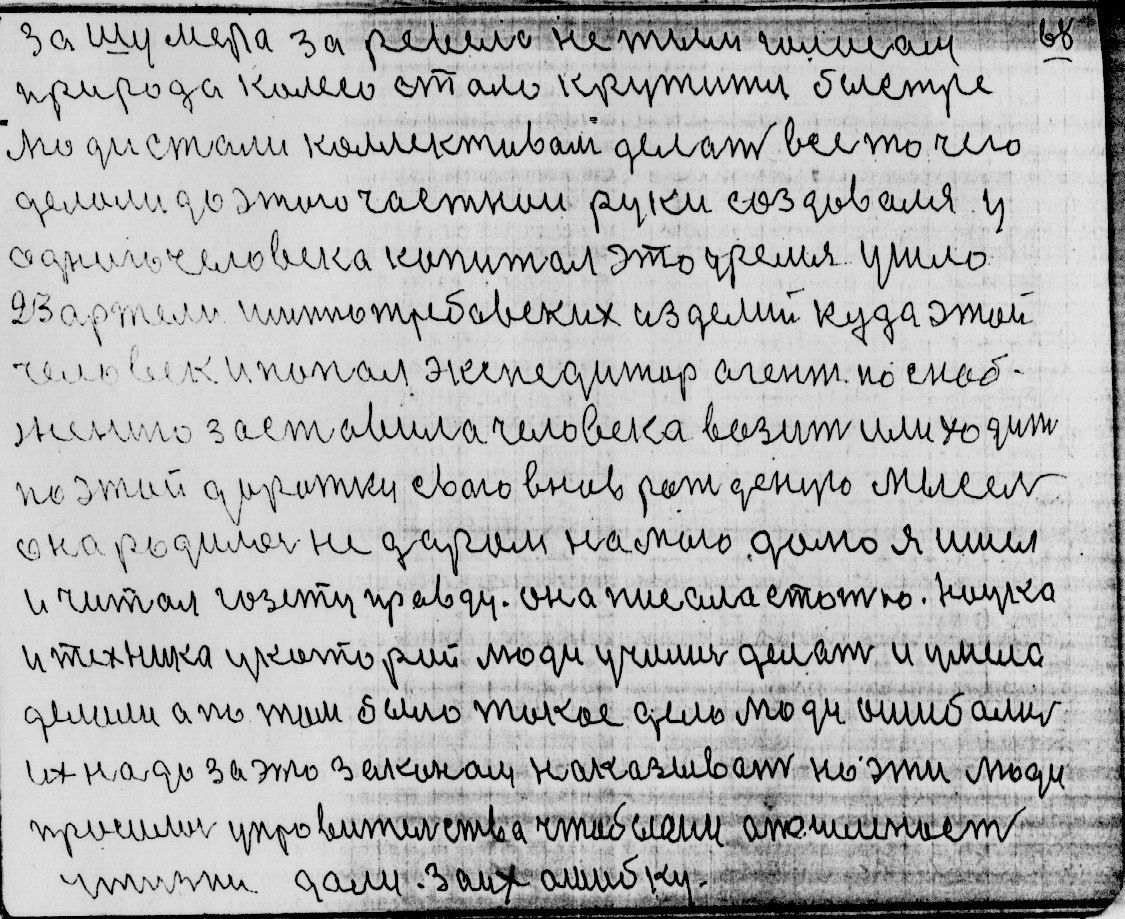 за шумера за ревело не тыли 68
природа колесо стало крутити быстре
люди стали коллективам делат все то чего
делали до этого частнои руки создовался у
одного человека копитал это уремя ушло
23 артели шипотребовских изделий куда этот
человек и попал экспедитор агент по снаб-
жению заставила человека возит или ходит
по этой доротки свого внов рожденую мысел
она родилас не даром на мою долю я ишол
и читал гозету правду. она писала статю. наука
и техника укоторий люди училис делат и умела
делали а по том было токое дело люди ошибалис
их надо за это законам наказыват но эти люди
просилис управителства чтоб слаиц
жизни дали. за их ошибку.